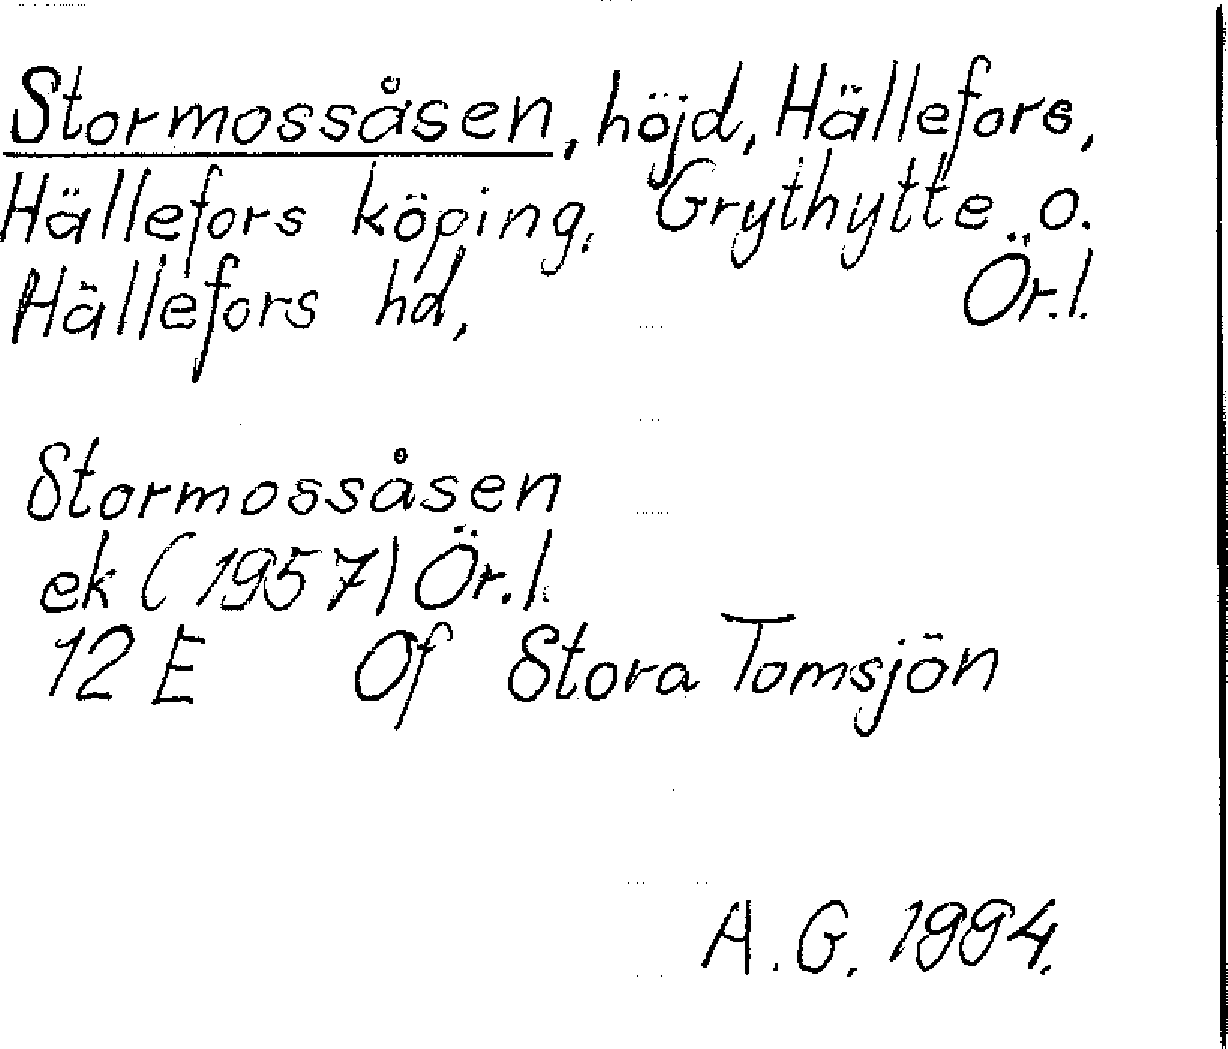 Stormossåsen, höjd, Hällefors,
Hällefors köping, Grythytte o.
Hällefors hd, Ör.l.
Stormossåsen
ek (1957) Ör.l.
12 E Of Stora Tomsjön
A.G. 1994.